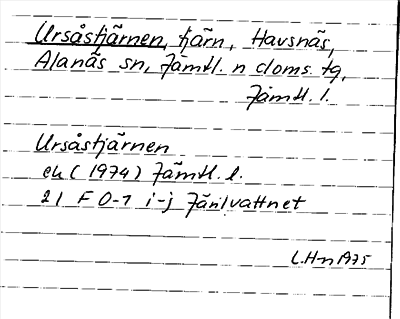 Ursåstjärnen, tjärn, Havsnäs,
Alanäs sn, Jämtl. n doms. tg,
Jämtl. l.
Ursåstjärnen
ek (1974) Jämtl. l.
21 F 0-1 i-j Järilvattnet
L.Hn 1975